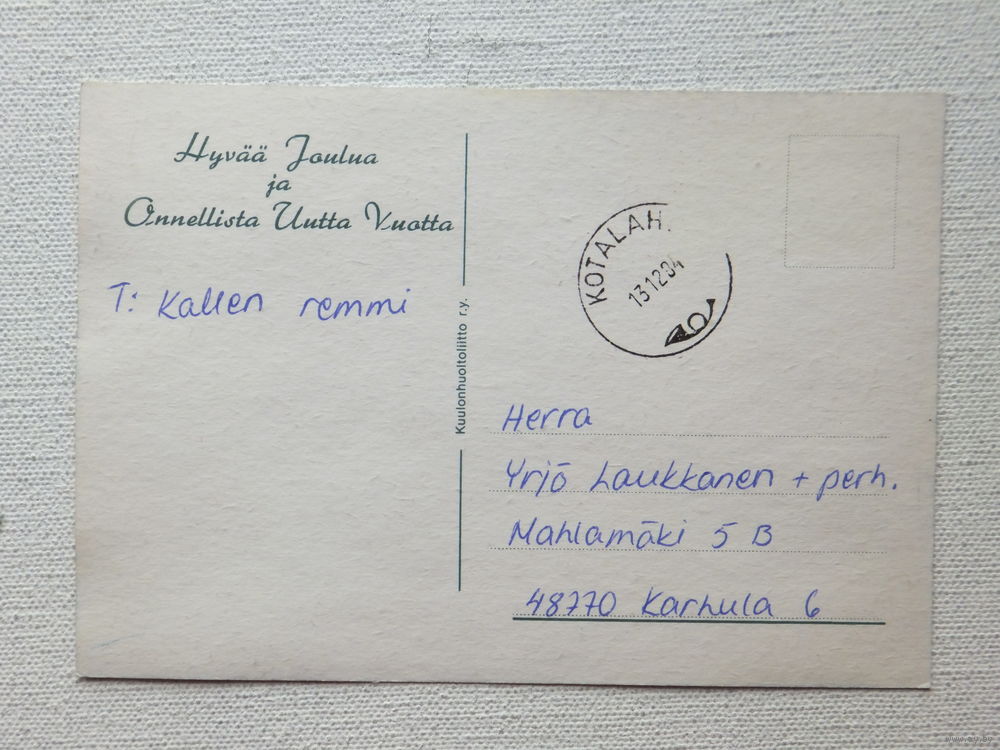 Hyvää Joulua
ja
Onnellista Uutta Vuotta
T: Kallen remmi
Kuulonhuoltoliitto r.y.
KOTALAH.
131284
Herra
Yrjö Laukkanen + perh.
Mahlamäki 5 B
48770 Karhula 6